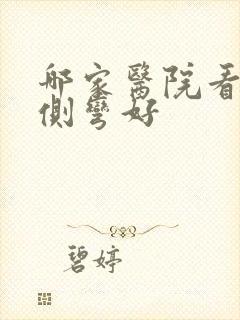 哪家醫院看
側彎好
碧婷